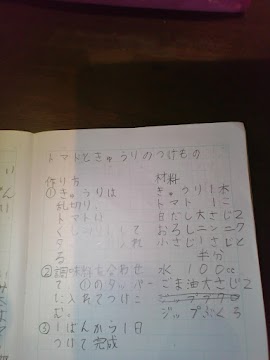 トマトときゅうりのつけもの
作り方
①きゅうりは
乱切り、
トマトは
くし
②調味料を合わせ
て①のタッパー
に入れてつけこ
む。
③1ばんから1日
つけて完成
材料
きゅうり1本
トマト1こ
白だし大さじ2
おろしニンニク
小さじ1さじと
半分
水100cc
ごま油大さじ2
ジップぶくろ